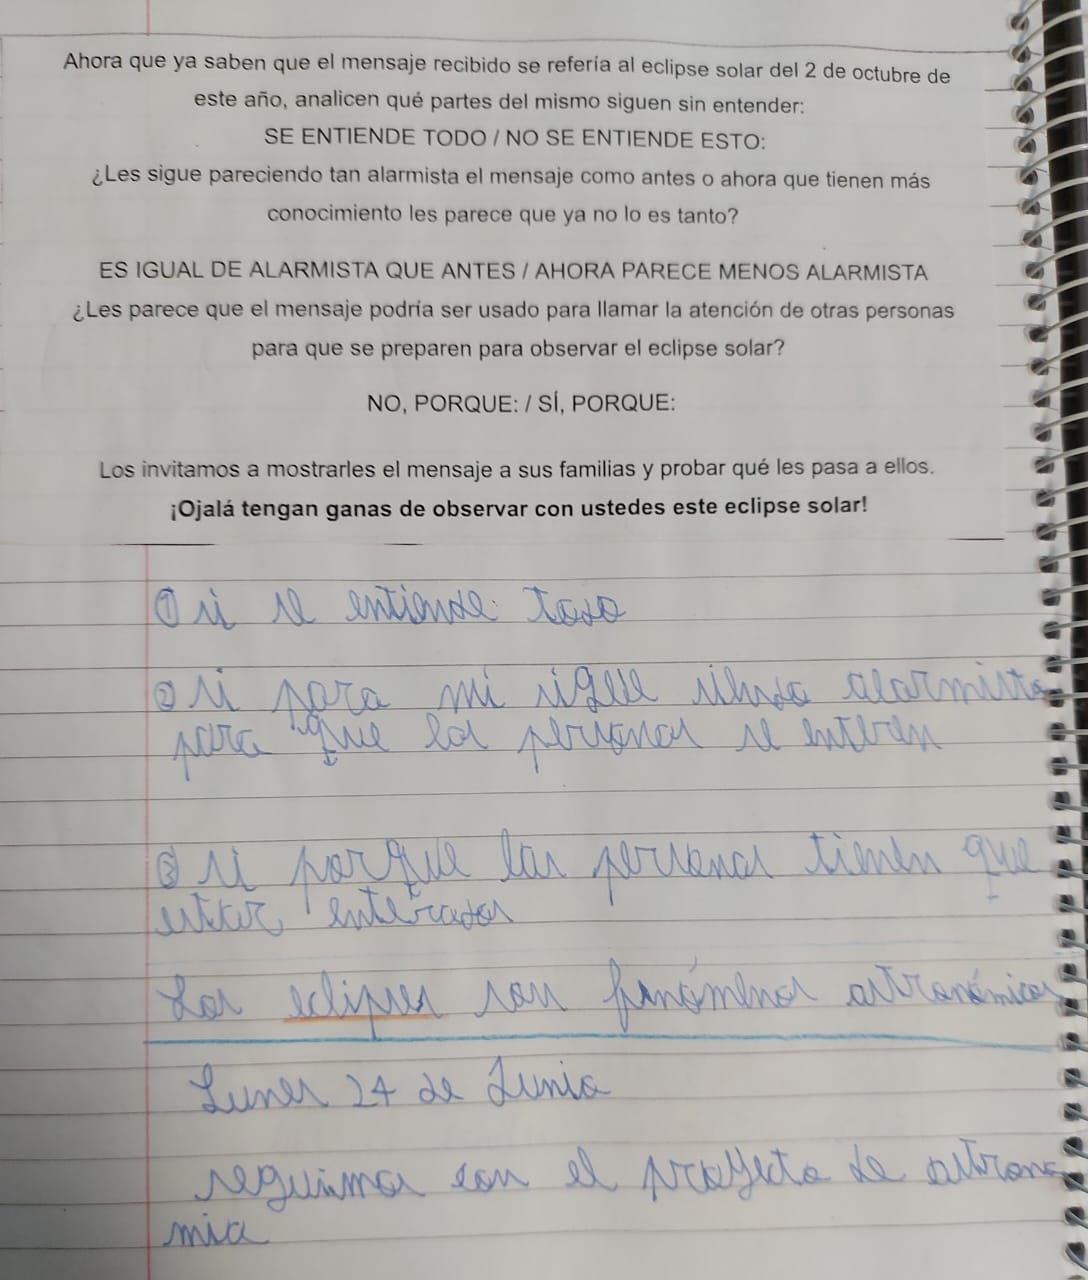 Ahora que ya saben que el mensaje recibido se refería al eclipse solar del 2 de octubre de
este año, analicen qué partes del mismo siguen sin entender:
SE ENTIENDE TODO / NO SE ENTIENDE ESTO:
¿Les sigue pareciendo tan alarmista el mensaje como antes o ahora que tienen más
conocimiento les parece que ya no lo es tanto?
ES IGUAL DE ALARMISTA QUE ANTES / AHORA PARECE MENOS ALARMISTA
¿Les parece que el mensaje podría ser usado para llamar la atención de otras personas
para que se preparen para observar el eclipse solar?
NO, PORQUE: / SÍ, PORQUE:
Los invitamos a mostrarles el mensaje a sus familias y probar qué les pasa a ellos.
¡Ojalá tengan ganas de observar con ustedes este eclipse solar!
① si se entiende todo
② si para mi sigue siendo alarmista
para que las personas se enteren
③ si porque las personas tienen que
estar enterados
Los eclipses son fenómenos astronómicos
Lunes 24 de Junio
seguimos con el proyecto de astrono
mia